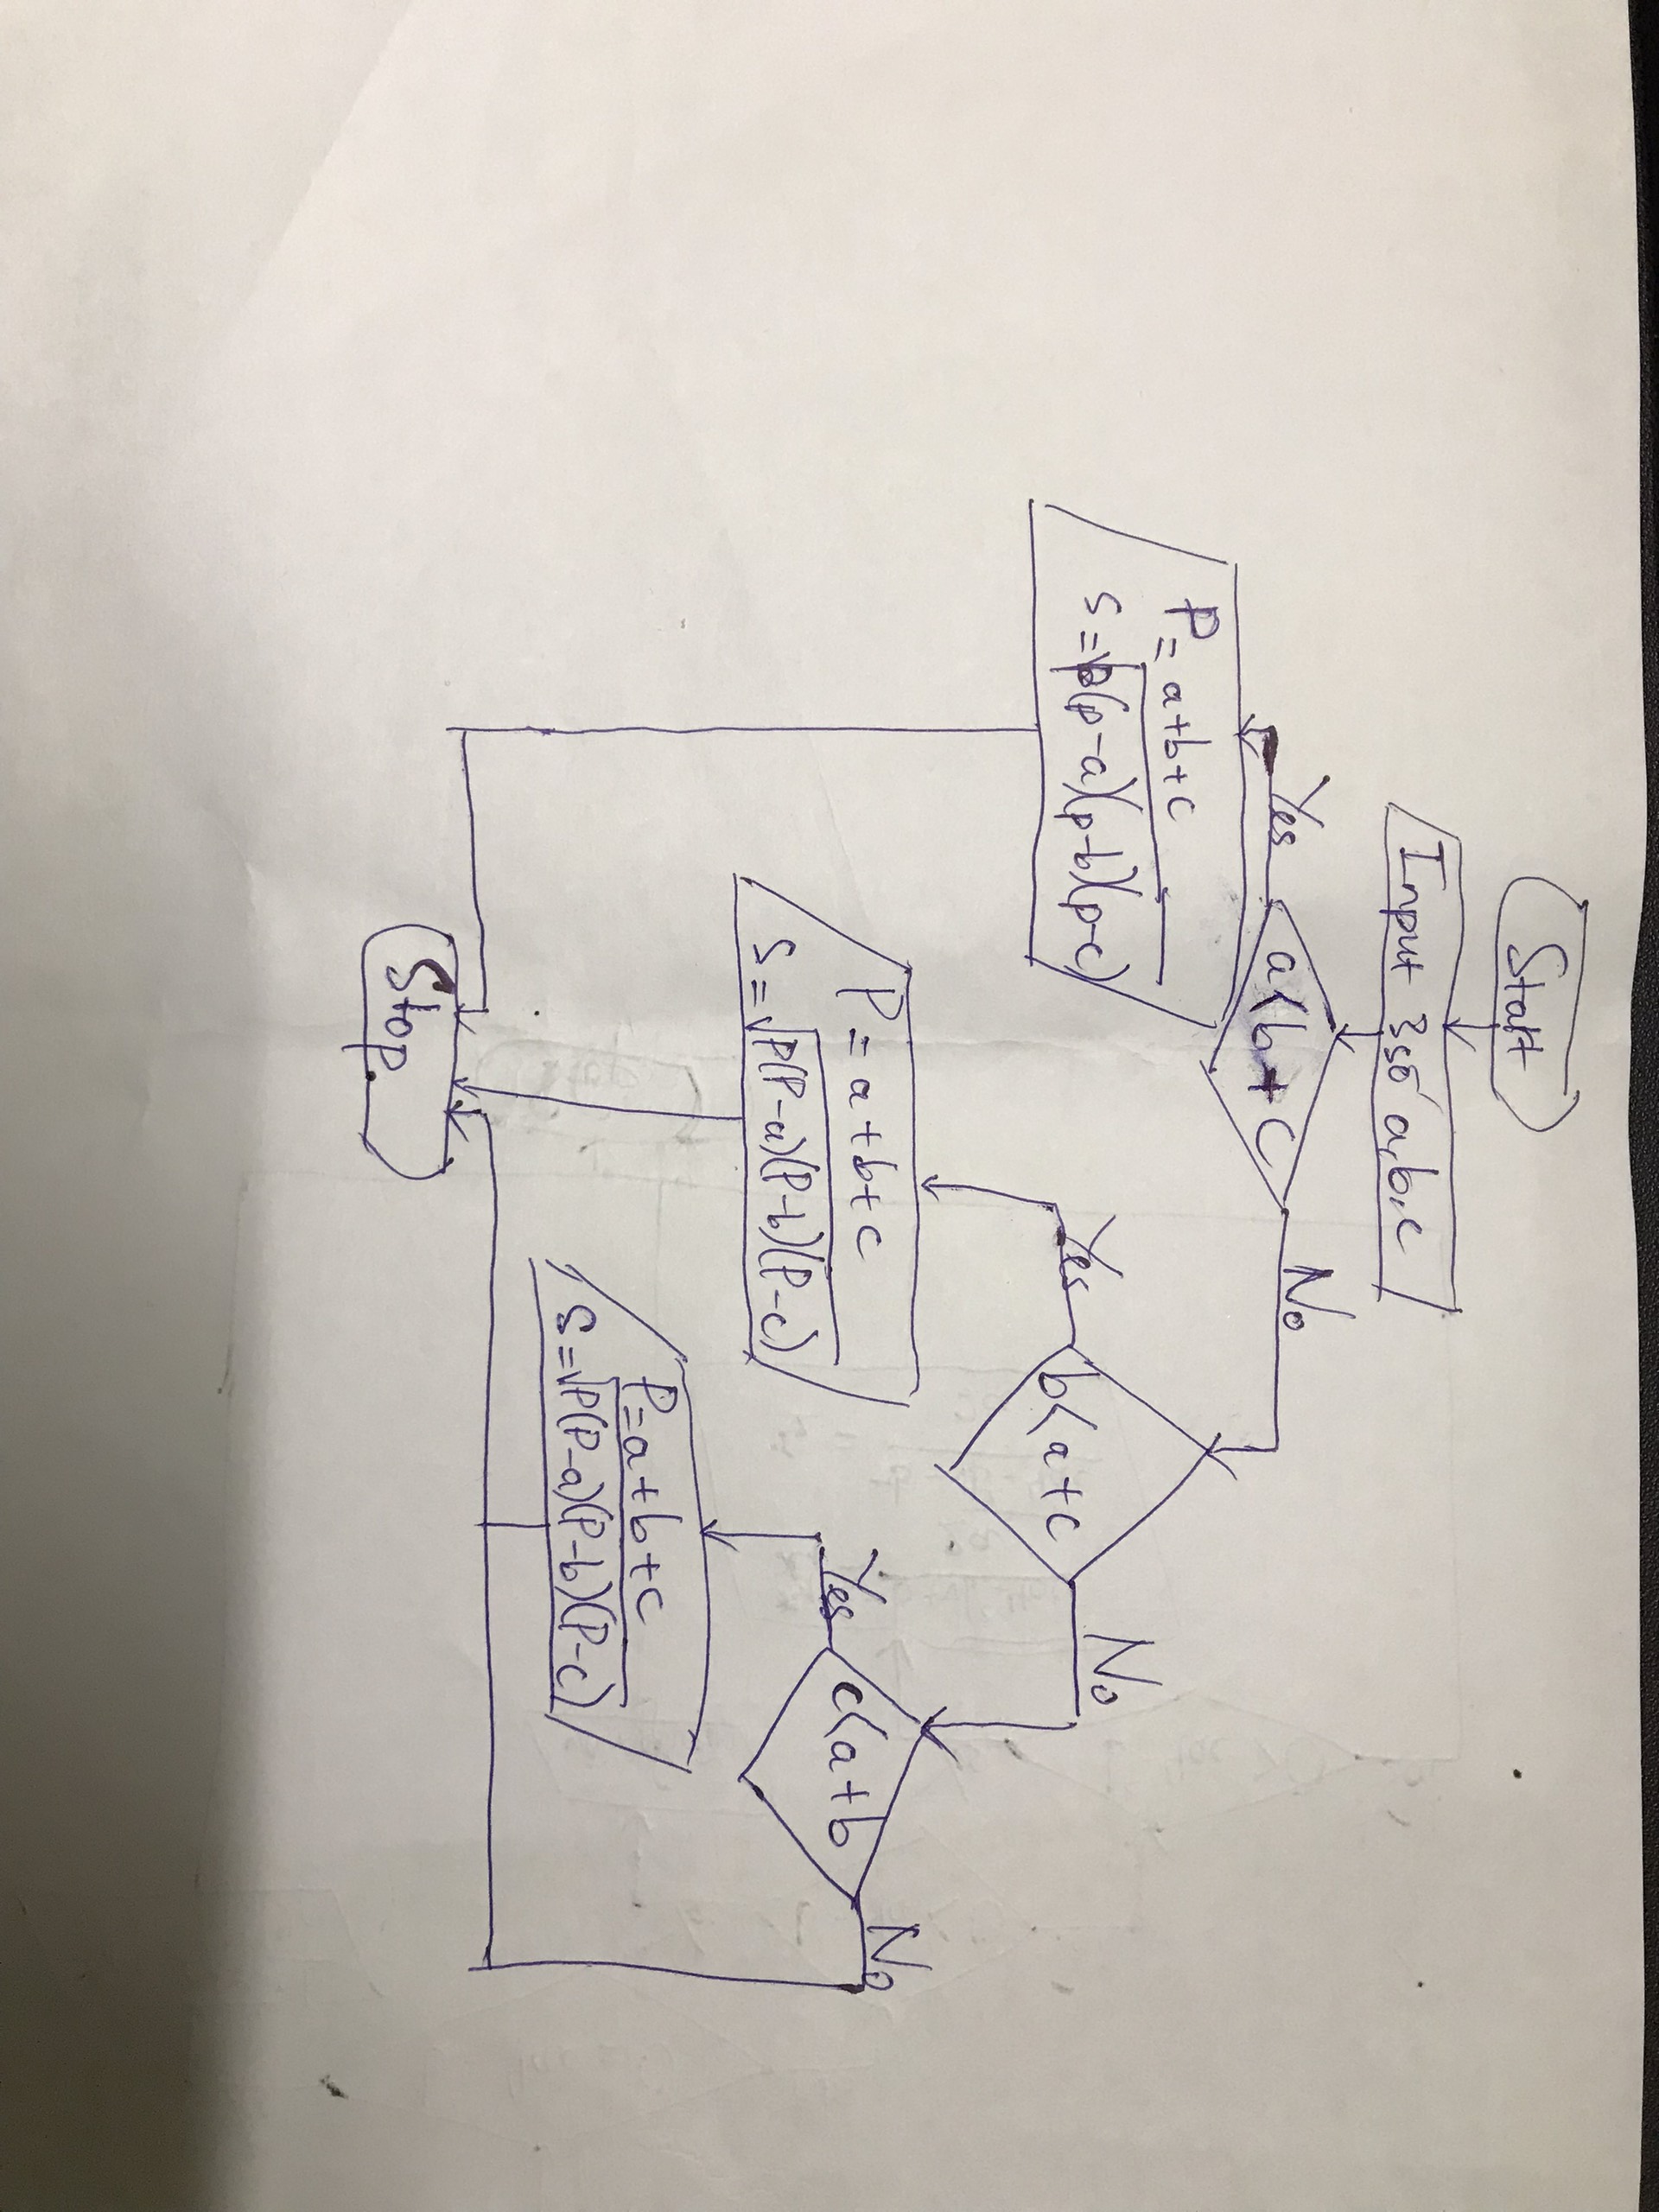 Start
Input 3 số a,b,c
a<b+c
Yes
No
P=a+b+c
S=√p(p-a)(p-b)(p-c)
b<a+c
Yes
No
P=a+b+c
S=√P(P-a)(P-b)(P-c)
c<a+b
Yes
No
P=a+b+c
S=√P(P-a)(P-b)(P-c)
Stop